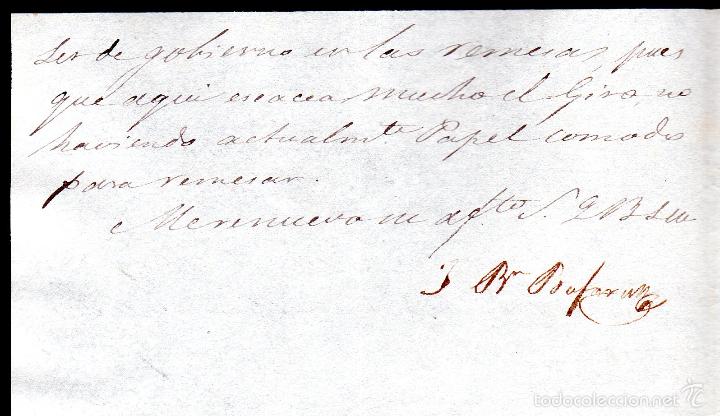 les de gobierno en las remesas, pues
que aqui escacea mucho el Giro, no
haviendo actualmte. Papel comodo
para remesar.
Me renuevo su afto. S. Q B S M
J Bn
todocoleccion.net